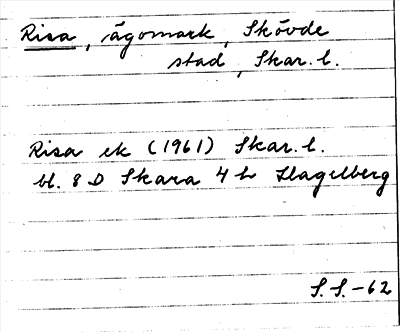 Risa, ägomark, Skövde
stad, Skar. l.
Risa ek (1961) Skar. l.
bl. 8 D Skara 4 h Hagelberg
S. S. -62